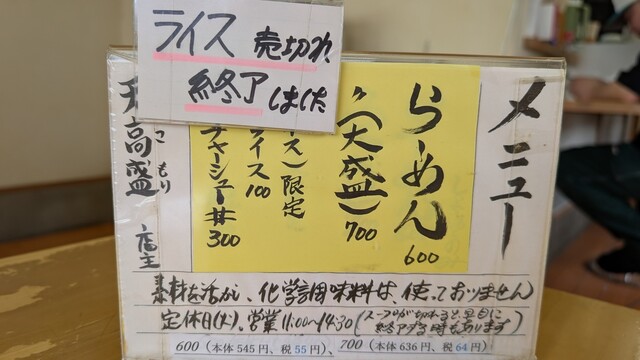 ライス 売切れ
終了しました
メニュー
らーめん 600
〃(大盛) 700
ース)限定
イス 100
チャーシュー丼 300
高盛
こもり
店主
素材を活かし、化学調味料は、使っておりません
定休日(火)、営業11:00〜14:30(スープが切れると、早目に
終了する時もあります)
600(本体545円、税55円)、700(本体636円、税64円)